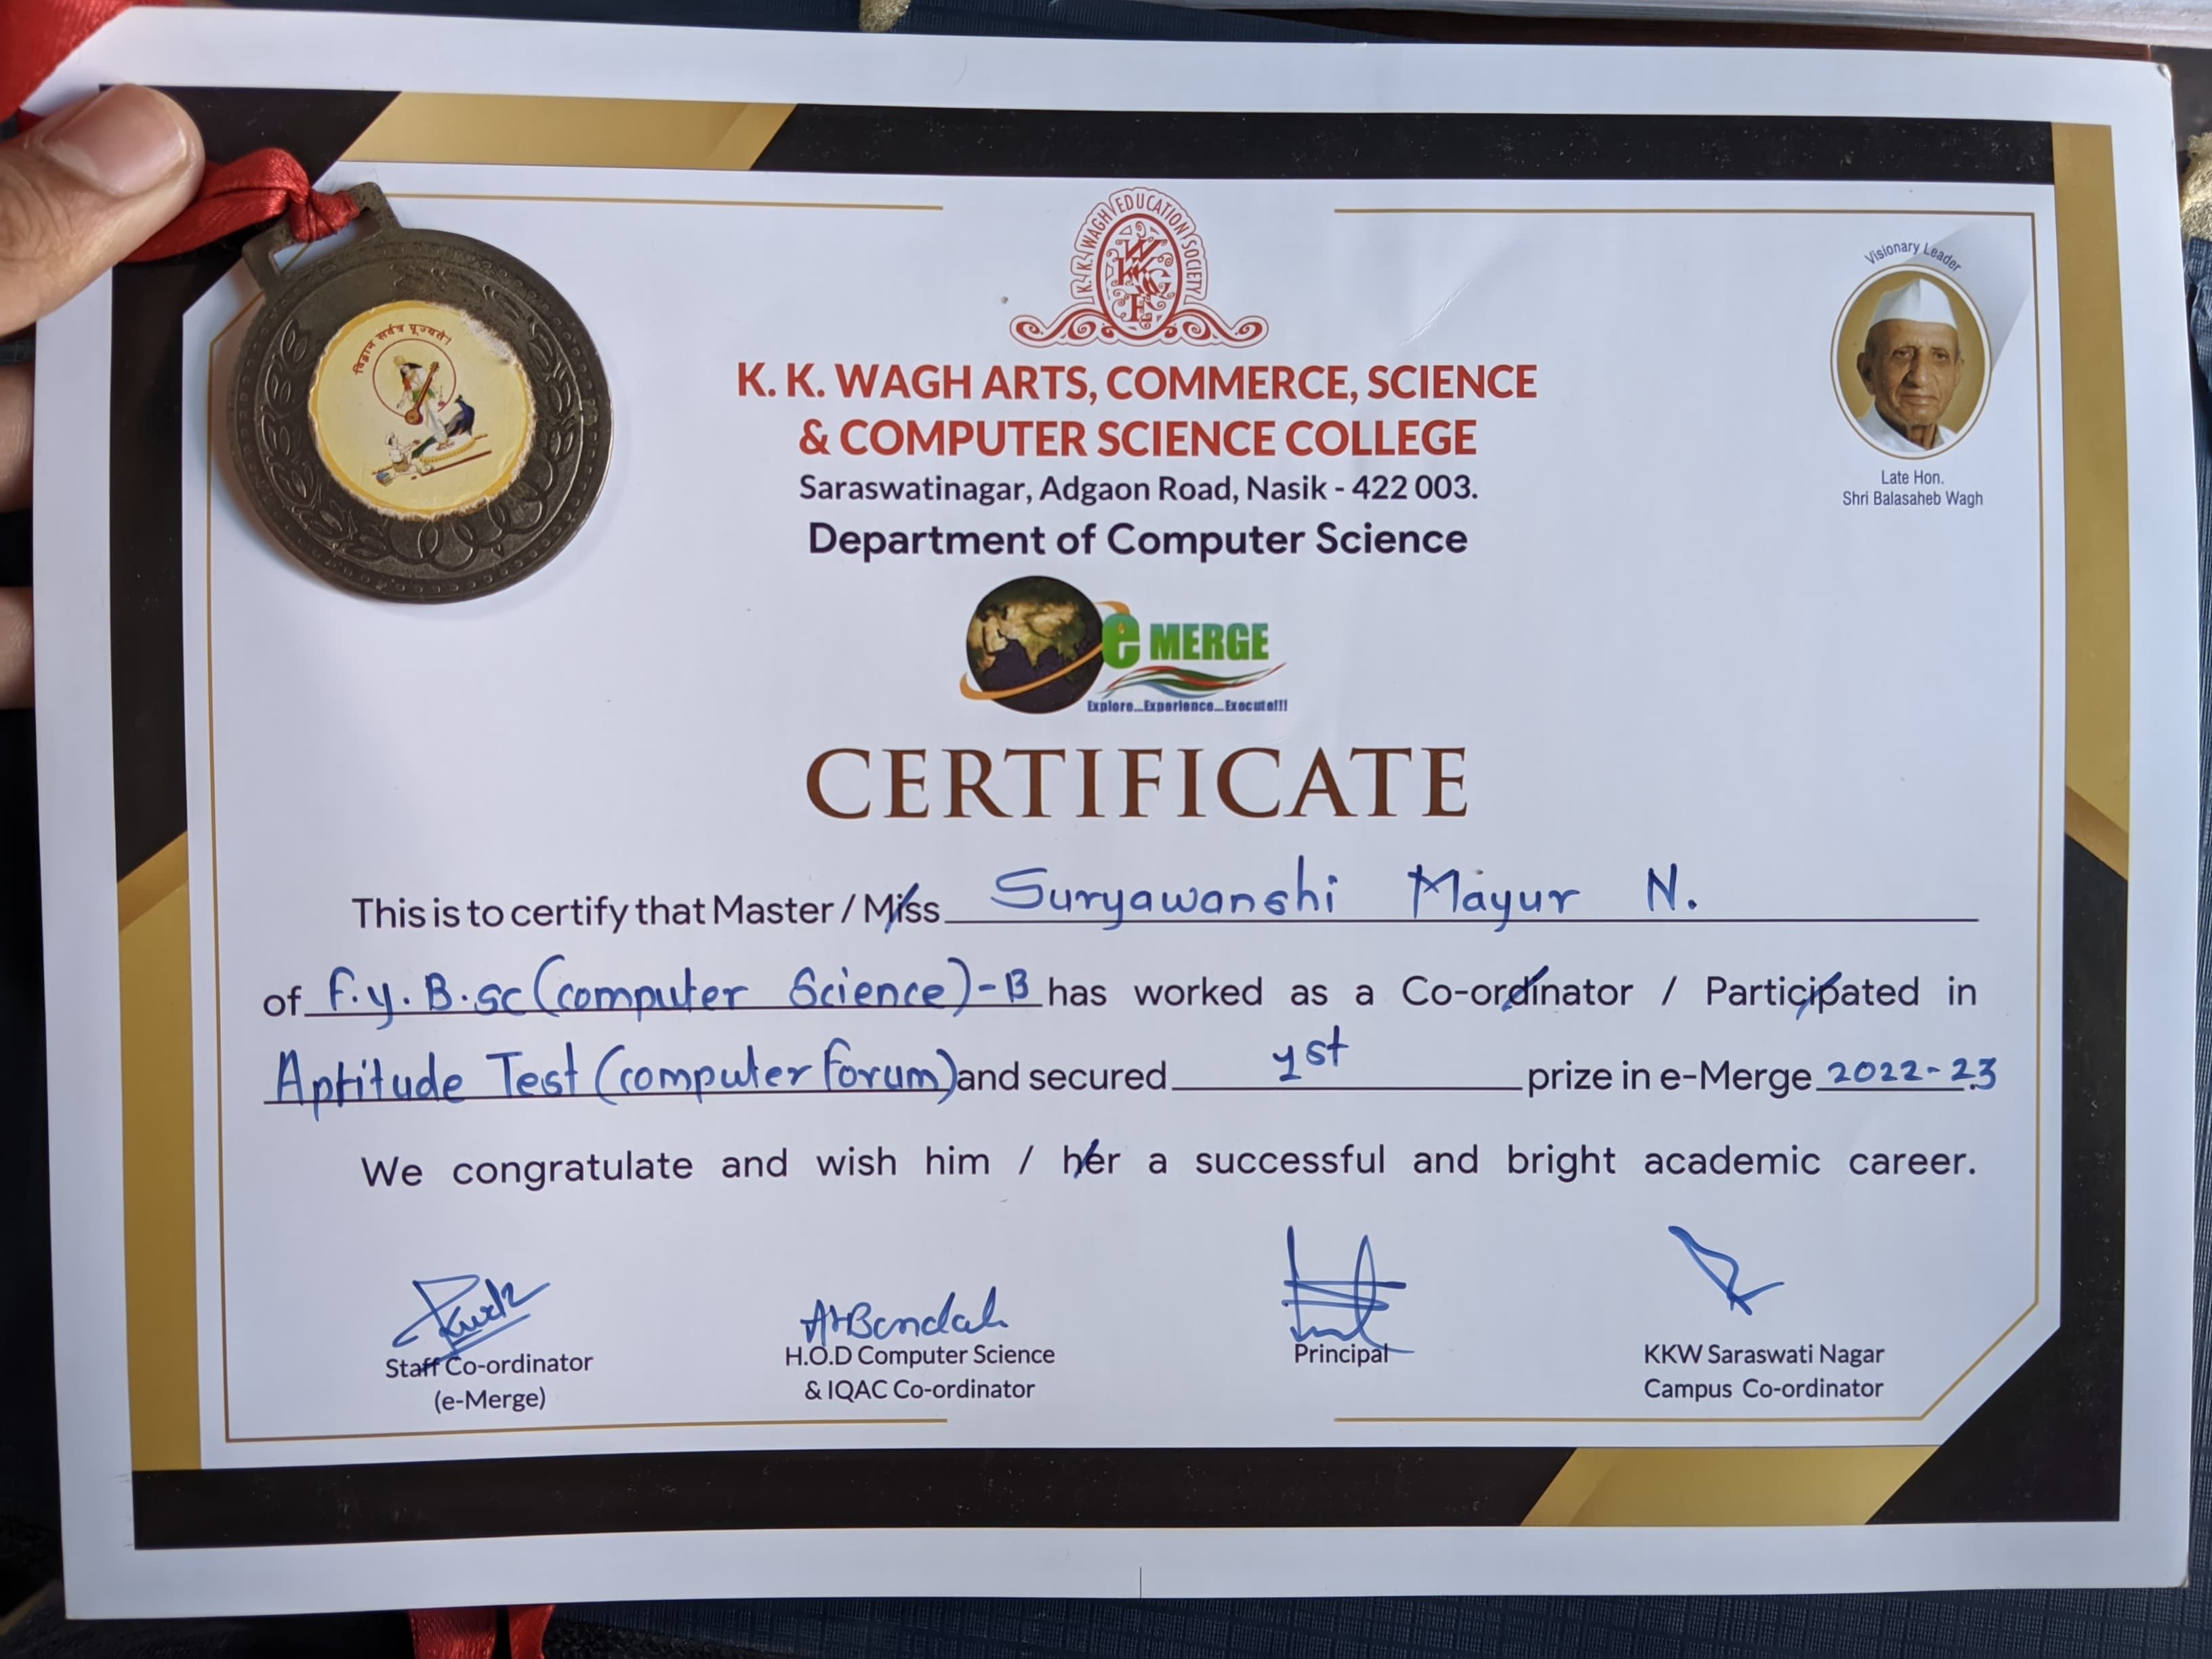 विद्वान सर्वत्र पूज्यते।
K. K. WAGH EDUCATION SOCIETY
Visionary Leader
K. K. WAGH ARTS, COMMERCE, SCIENCE
& COMPUTER SCIENCE COLLEGE
Saraswatinagar, Adgaon Road, Nasik - 422 003.
Department of Computer Science
Late Hon.
Shri Balasaheb Wagh
e MERGE
Explore...Experience...Execute!!!
CERTIFICATE
This is to certify that Master / Miss Suryawanshi Mayur N.
of F.y.B.sc (computer Science)-B has worked as a Co-ordinator / Participated in
Aptitude Test (computer Forum) and secured 1st prize in e-Merge 2022-23
We congratulate and wish him / her a successful and bright academic career.
Staff Co-ordinator
(e-Merge)
H.O.D Computer Science
& IQAC Co-ordinator
Principal
KKW Saraswati Nagar
Campus Co-ordinator